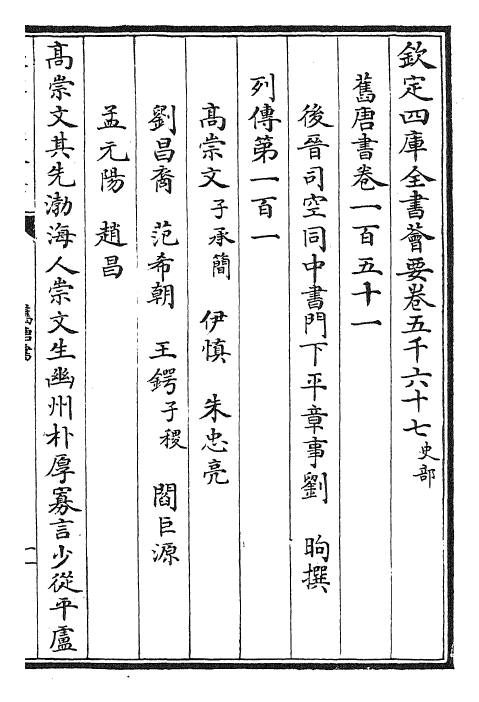 欽定四庫全書薈要卷五千六十七史部
舊唐書卷一百五十一
後晉司空同中書門下平章事劉 昫撰
列傳第一百一
高崇文子承簡 伊慎 朱忠亮
劉昌裔 范希朝 王鍔子稷 閻巨源
孟元陽 趙昌
高崇文其先渤海人崇文生幽州朴厚寡言少從平盧
舊唐書
一